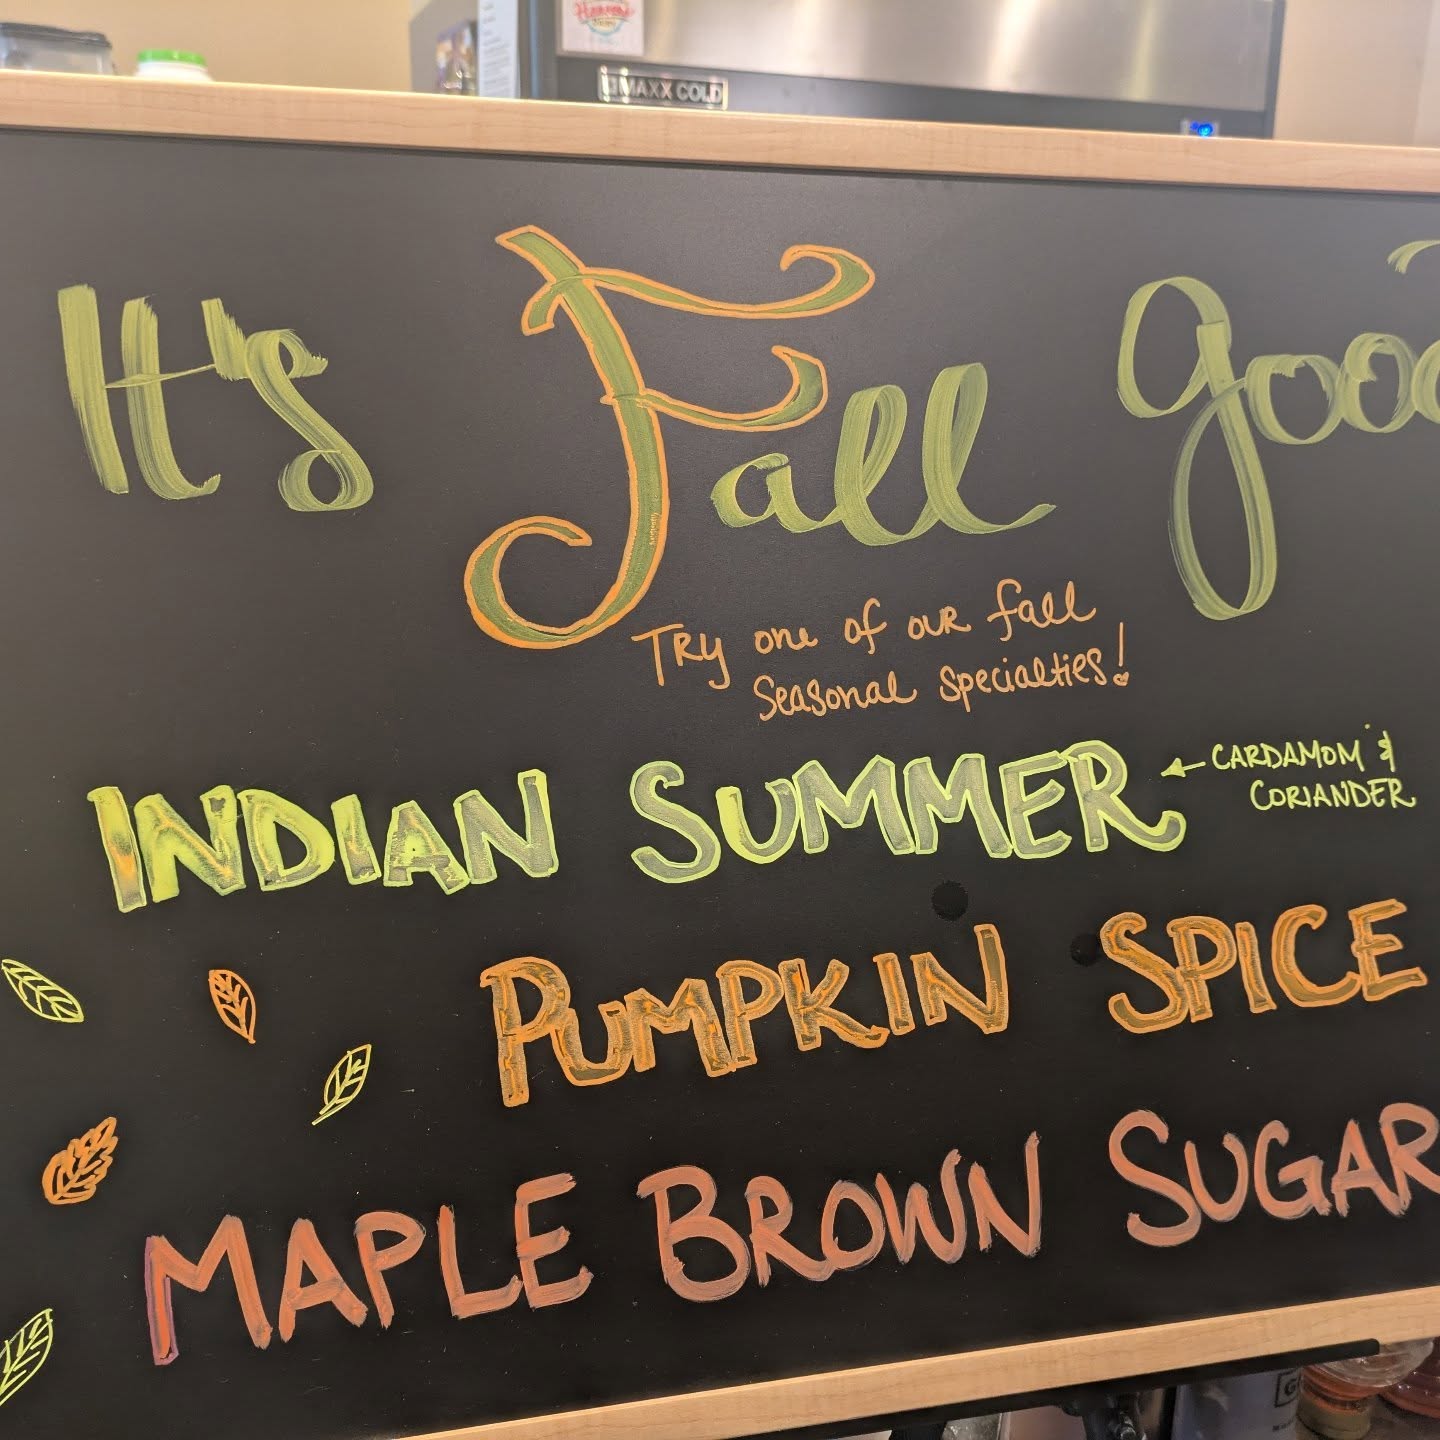 MAXX COLD
It's Fall good
Try one of our fall
seasonal specialties!
INDIAN SUMMER ← CARDAMOM &
CORIANDER
PUMPKIN SPICE
MAPLE BROWN SUGAR